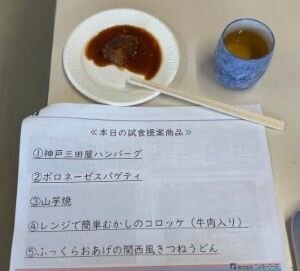 ≪本日の試食提案商品≫
①神戸三田屋ハンバーグ
②ボロネーゼスパゲティ
③山芋焼
④レンジで簡単むかしのコロッケ（牛肉入り）
⑤ふっくらおあげの関西風きつねうどん